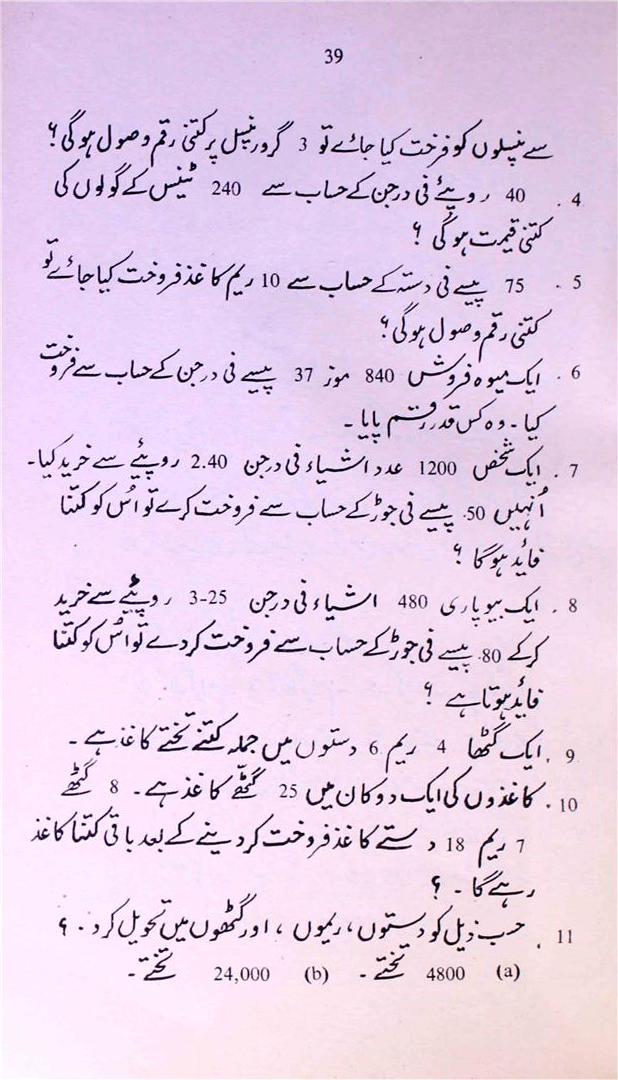 39
سے نپسلوں کو فرخت کیا جائے تو 3 گرور نپسل پر کتنی رقم وصول ہو گی؟
4 . 40 روپئے فی درجن کے حساب سے 240 ٹینس کے گولوں کی
کتنی قیمت ہو گی ؟
5 . 75 پیسے فی دستہ کے حساب سے 10 ریم کاغذ فروخت کیا جائے تو
کتنی رقم وصول ہو گی؟
6 . ایک میوہ فروش 840 موز 37 پیسے فی درجن کے حساب سے فروخت
کیا ۔ وہ کس قدر رقم پایا ۔
7 . ایک شخص 1200 عدد اشیاء فی درجن 2.40 روپئے سے خرید کیا۔
اُنہیں 50. پیسے فی جوڑ کے حساب سے فروخت کرے تو اُس کو کتنا
فاید ہو گا ؟
8 . ایک بیوپاری 480 اشیاء فی درجن 3-25 روپئیے سے خرید
کر کے 80. پیسے فی جوڑ کے حساب سے فروخت کر دے تو اُس کو کتنا
فائد ہوتا ہے ؟
9 . ایک گٹھا 4 ریم 6 دستوں میں جملہ کتنے تختے کاغذ ہے ۔
10 . کاغذوں کی ایک دوکان میں 25 گٹھے کاغذ ہے۔ 8 گٹھے
7 ریم 18 دستے کاغذ فروخت کر دینے کے بعد باقی کتنا کاغذ
رہے گا ۔ ؟
11 . حسب ذیل کو دستوں، ریموں ، اور گٹھوں میں تحویل کرد . ؟
(a) 4800 تختے ۔ (b) 24,000 تختے ۔